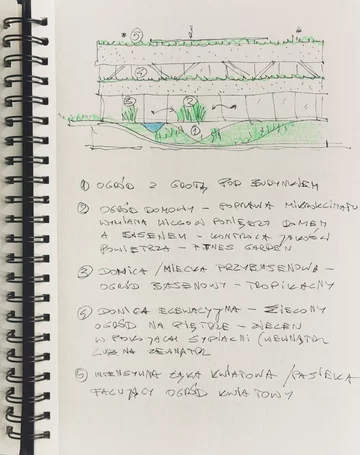 ⑤
④
③ ②
①
① OGRÓD Z GROTĄ POD BUDYNKIEM
② OGRÓD DOMOWY - POPRAWA MIKROKLIMATU
WYMIANA WILGOCI POMIĘDZY DOMEM
A BASENEM - KONTROLA JAKOŚCI
POWIETRZA - FITNES GARDEN
③ DONICA / NIECKA PRZYBASENOWA -
OGRÓD BASENOWY - TROPIKALNY
④ DONICA ELEWACYJNA - ZIELONY
OGRÓD NA PIĘTRZE - ZIELEŃ
W POKOJACH SYPIALNI / WEWNĄTRZ
LUB NA ZEWNĄTRZ
⑤ INTENSYWNA ŁĄKA KWIATOWA / PASIEKA
FALUJĄCY OGRÓD KWIATOWY